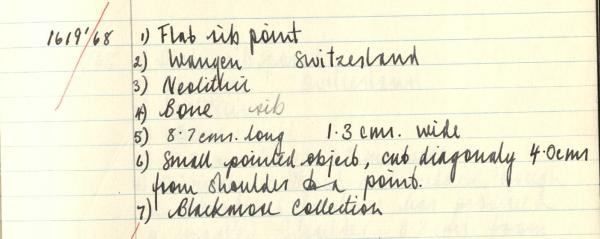 1619'68 1) Flat rib point
2) Wangen Switzerland
3) Neolithic
4) Bone rib
5) 8.7cms. long 1.3 cms. wide
6) Small pointed object, cut diagonaly 4.0cms
from shoulder to a point.
7) Blackmore Collection